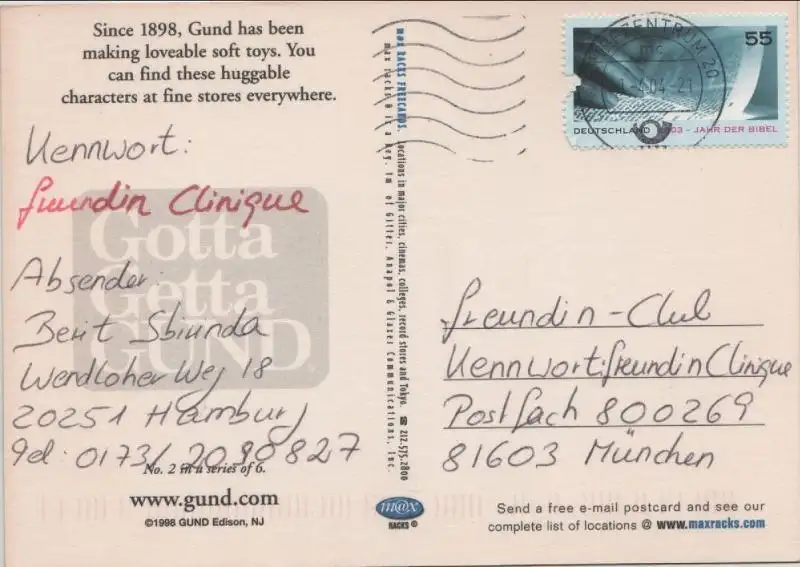 Since 1898, Gund has been
making loveable soft toys. You
can find these huggable
characters at fine stores everywhere.
Kennwort:
freundin Clinique
Gotta
Getta
GUND
Absender:
Berit
Wendloher Weg 18
20251 Hamburg
Tel: 0173/2090827
No. 2 in a series of 6.
www.gund.com
©1998 GUND Edison, NJ
max RACKS FREECARDS. Locations in major cities, cinemas, colleges, record stores and Tokyo. ☎ 212.575.2800
max racks ® is a Reg. tm of Gitter, Anapol & Glazer Communications, Inc.
m@x
RACKS ®
55
DEUTSCHLAND 2003 - JAHR DER BIBEL
ZENTRUM 20
4.04-21
freundin-Club
Kennwort: freundin Clinique
Postfach 800269
81603 München
Send a free e-mail postcard and see our
complete list of locations @ www.maxracks.com